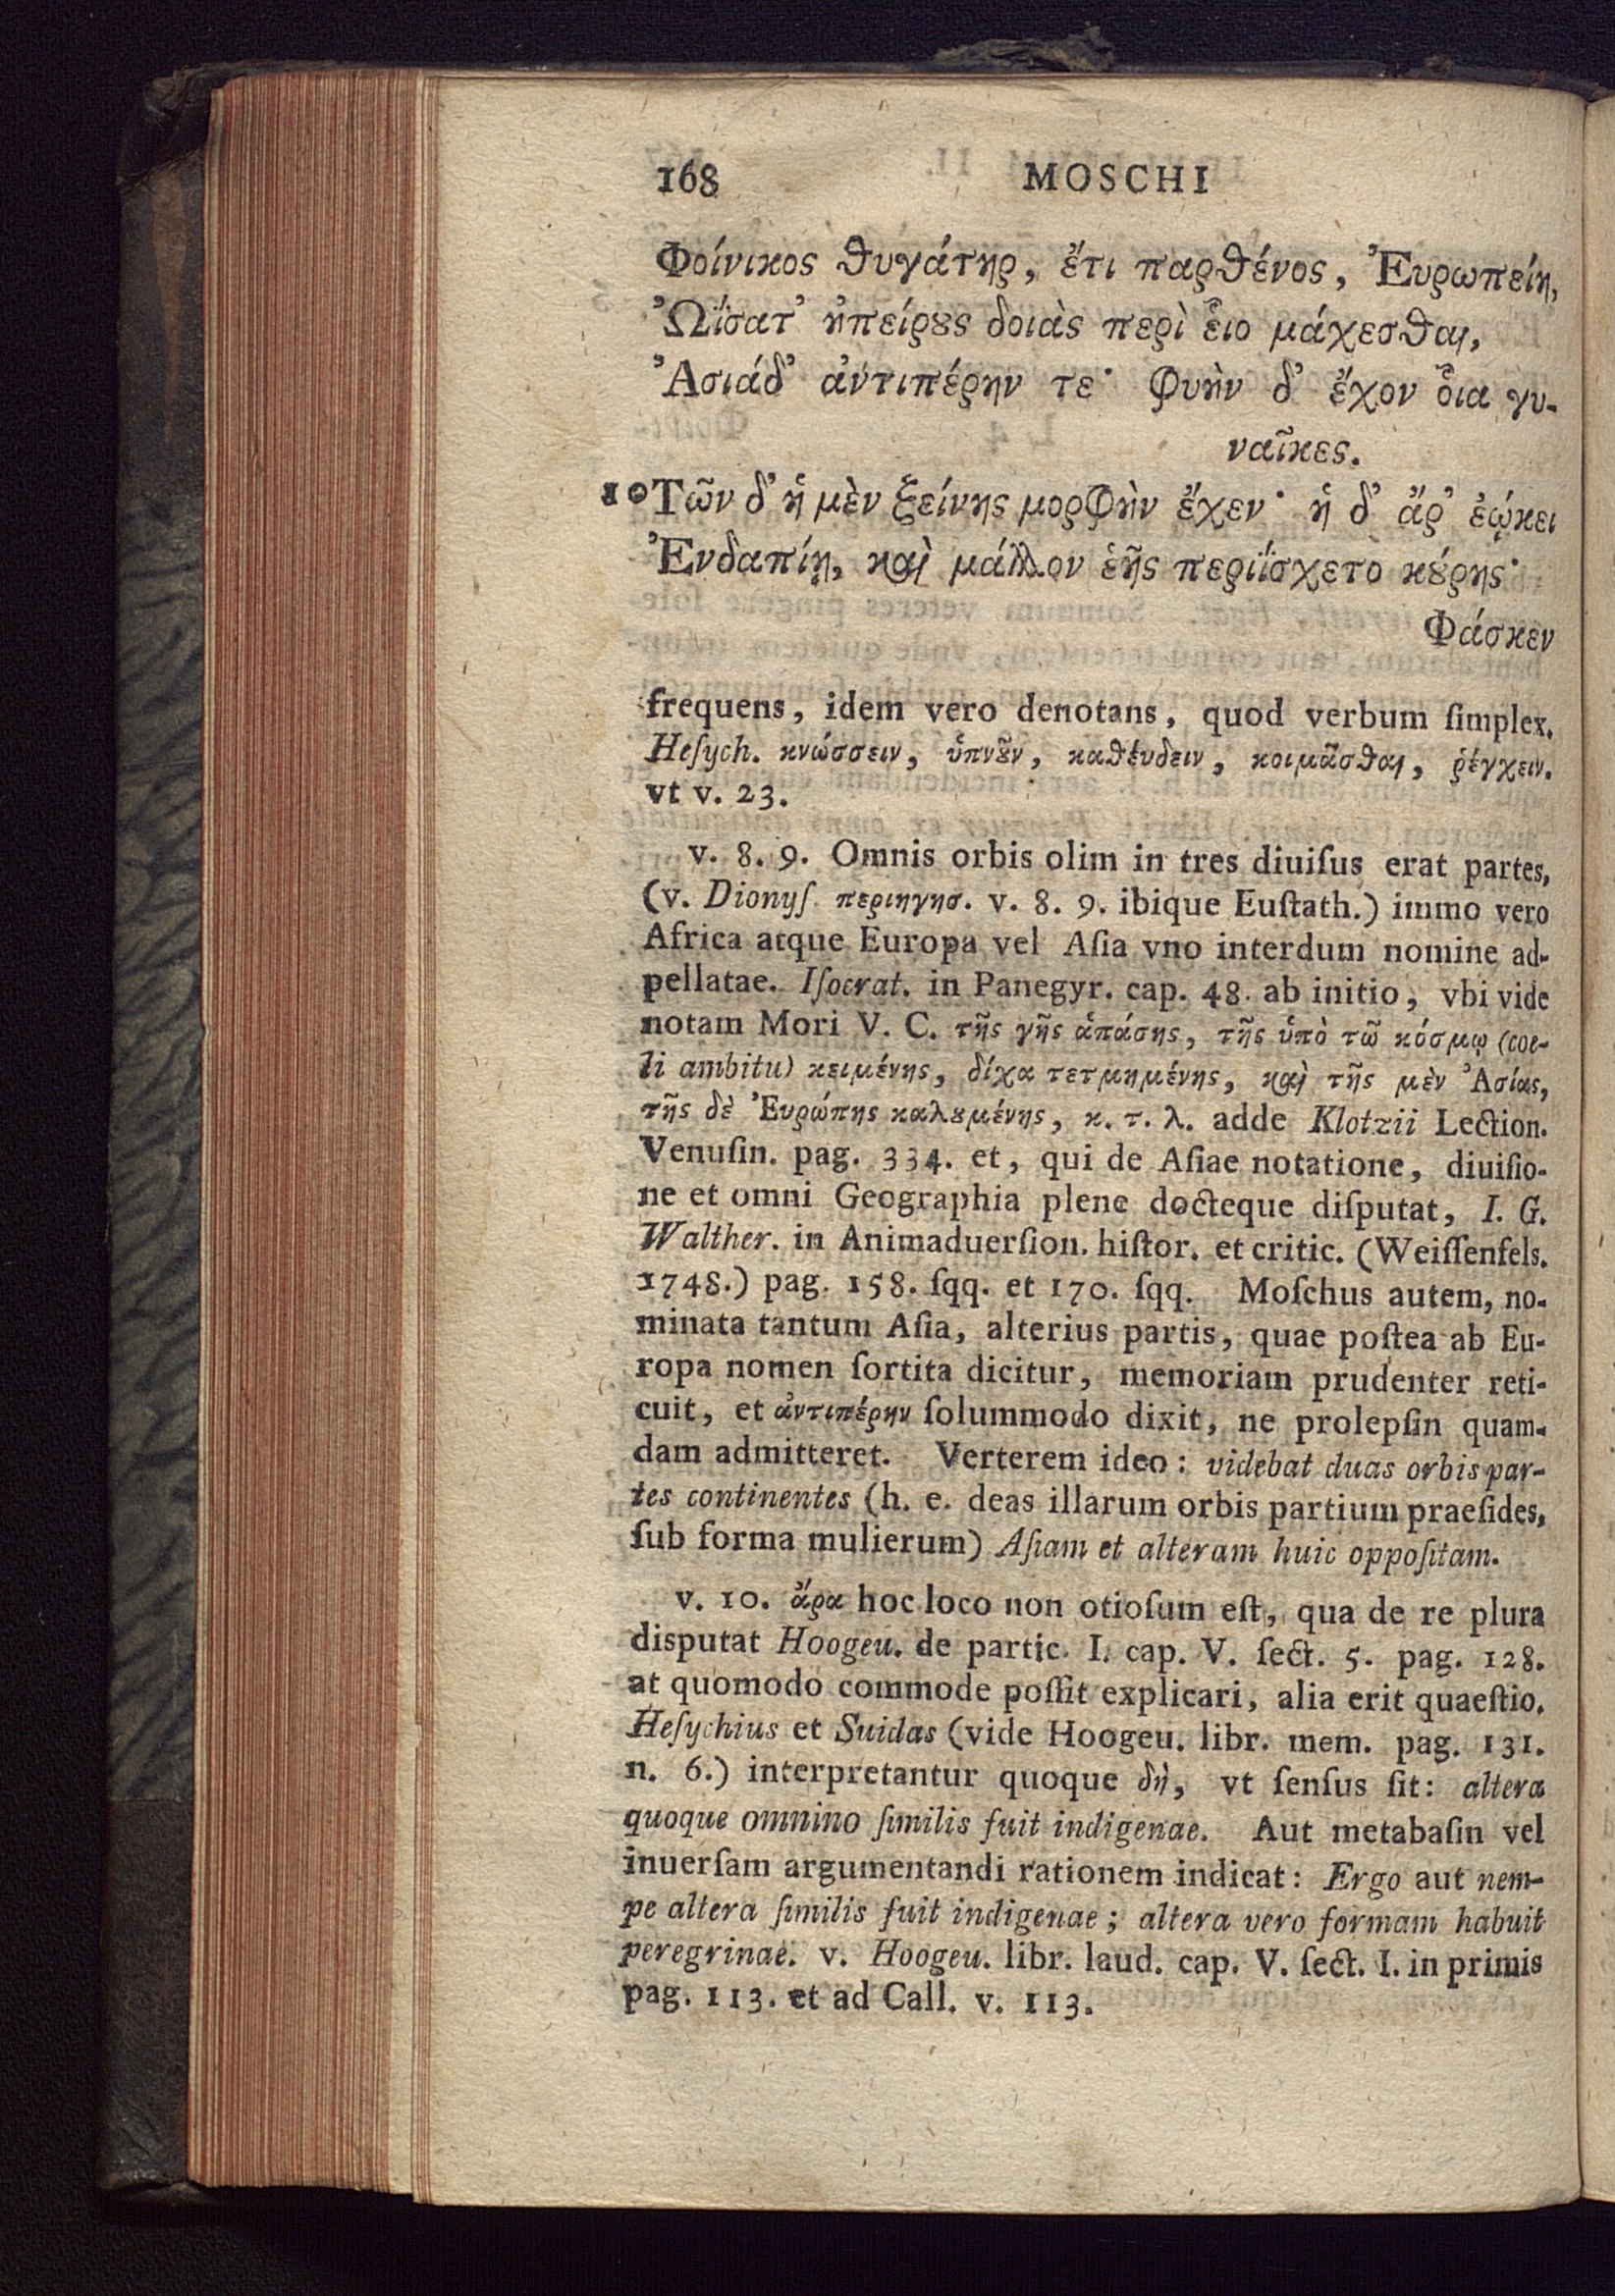 168 MOSCHI
Φοίνικος θυγάτηρ, ἔτι παρθένος, Ἐυρωπείη,
Ὠΐσατ' ἠπείρȣς δοιὰς περὶ ἕιο μάχεσθαι,
Ἀσιάδ' ἀντιπέρην τε· φυὴν δ' ἔχον ὅια γυ-
ναῖκες.
10 Τῶν δ' ἡ μὲν ξείνης μορφὴν ἔχεν· ἡ δ' ἄρ' ἐῴκει
Ἐνδαπίῃ, καὶ μάλλον ἑῆς περιΐσχετο κȣ́ρης·
Φάσκεν
frequens, idem vero denotans, quod verbum ſimplex.
Heſych. κνώσσειν, ὑπνȣ͂ν, καθέυδειν, κοιμᾶσθαι, ῥέγχειν.
vt v. 23.
v. 8. 9. Omnis orbis olim in tres diuiſus erat partes,
(v. Dionyſ. περιηγησ. v. 8. 9. ibique Euſtath.) immo vero
Africa atque Europa vel Aſia vno interdum nomine ad-
pellatae. Iſocrat. in Panegyr. cap. 48. ab initio, vbi vide
notam Mori V. C. τῆς γῆς ἁπάσης, τῆς ὑπὸ τῶ κόσμῳ (coe-
li ambitu) κειμένης, δίχα τετμημένης, καὶ τῆς μὲν Ἀσίας,
τῆς δὲ Ἐυρώπης καλȣμένης, κ. τ. λ. adde Klotzii Lection.
Venuſin. pag. 334. et, qui de Aſiae notatione, diuiſio-
ne et omni Geographia plene docteque diſputat, I. G.
Walther. in Animaduerſion. hiſtor. et critic. (Weiſſenfels.
1748.) pag. 158. ſqq. et 170. ſqq. Moſchus autem, no-
minata tantum Aſia, alterius partis, quae poſtea ab Eu-
ropa nomen ſortita dicitur, memoriam prudenter reti-
cuit, et ἀντιπέρην ſolummodo dixit, ne prolepſin quam-
dam admitteret. Verterem ideo: videbat duas orbis par-
tes continentes (h. e. deas illarum orbis partium praeſides,
ſub forma mulierum) Aſiam et alteram huic oppoſitam.
v. 10. ἄρα hoc loco non otioſum eſt, qua de re plura
disputat Hoogeu. de partic. I. cap. V. ſect. 5. pag. 128.
at quomodo commode poſſit explicari, alia erit quaeſtio.
Heſychius et Suidas (vide Hoogeu. libr. mem. pag. 131.
n. 6.) interpretantur quoque δὴ, vt ſenſus ſit: altera
quoque omnino ſimilis fuit indigenae. Aut metabaſin vel
inuerſam argumentandi rationem indicat: Ergo aut nem-
pe altera ſimilis fuit indigenae; altera vero formam habuit
peregrinae. v. Hoogeu. libr. laud. cap. V. ſect. I. in primis
pag. 113. et ad Call. v. 113.